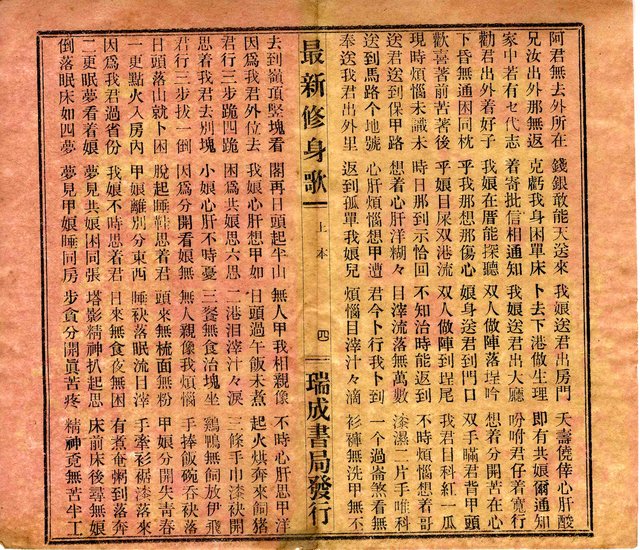 阿君無去外所在 錢銀敢能天送來 我娘送君出房門 夭壽僥倖心肝酸
兄汝出外那無返 克虧我身困單床 卜去下港做生理 即有共娘爾通知
家中若有乜代志 着寄批信相通知 我娘送君出大廳 吩咐君仔着寬行
勸君出外着好子 我娘在厝能探聽 双人做陣落埕吟 想着分開苦在心
下昏無通困同枕 乎我那想那傷心 娘身送君到門口 双手瞞君背甲頭
歡喜著前苦著後 乎娘目屎双港流 双人做陣到埕尾 我君目科紅一瓜
現時煩惱未識未 時日那到示恰回 不知治時能返到 不時煩惱想着哥
送君送到保甲路 想着心肝洋糊々 目滓流落無萬數 漆濕二片手唯科
送到馬路个地號 心肝煩惱想甲遭 君今卜行我卜到 一个過崙煞看無
奉送我君出外里 返到孤單我娘兒 煩惱目滓汁々滴 衫褲無洗甲無不
最新修身歌 上本 四 瑞成書局發行
去到嶺頂竪塊看 閣再日頭起半山 無人甲我相親像 不時心肝思甲洋
因為我君外位去 我娘心肝想甲如 日頭過午飯未煮 起火烘奔來飼猪
君行三步跪四跪 因為共娘思六思 二港泪滓汁々淚 三條手巾漆袂開
思着我君去別塊 小娘心肝不時憂 三餐無食治塊坐 鷄鴨無飼放伊飛
君行三步拔一倒 因為分開看娘無 無人親像我煩惱 手捧飯碗吞袂落
日頭落山就卜困 脫起睡鞋思着君 頭來無梳面無粉 甲娘分開失青春
一更點火入房內 甲娘離別分東西 睡袂落眠流目滓 手牽衫裾漆落來
因為我君過省份 我娘不時思着君 日來無食夜無困 有煮奄粥到落奔
二更眠夢看着娘 夢見共娘困同張 塔影精神扒起思 床前床後尋無娘
倒落眠床如四夢 夢見甲娘睡同房 步貪分開眞苦疼 精神竟無苦半工